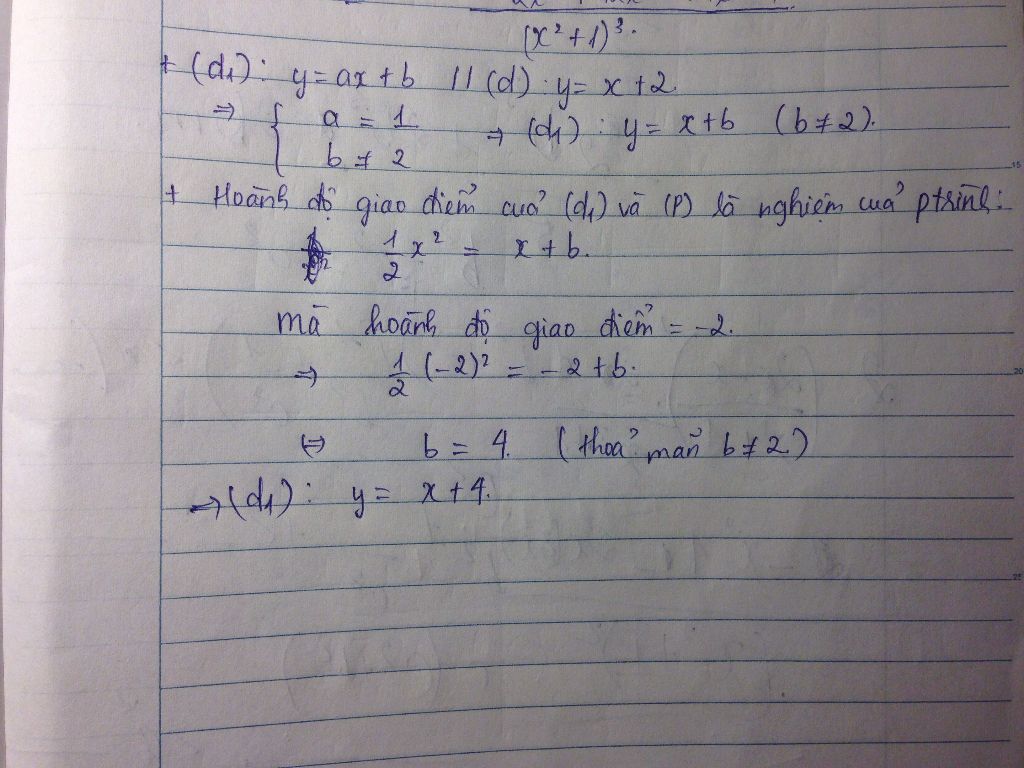 (x² + 1)³.
+ (d₁) : y = ax + b // (d) : y = x + 2.
⇒ { a = 1 → (d₁) : y = x + b (b ≠ 2).
b ≠ 2
+ Hoành độ giao điểm cuả (d₁) và (P) là nghiệm cuả ptrình:
1/2 x² = x + b.
mà hoành độ giao điểm = -2.
⇒ 1/2 (-2)² = -2 + b.
⇔ b = 4. (thoả mãn b ≠ 2)
→ (d₁) : y = x + 4.
15
20
25